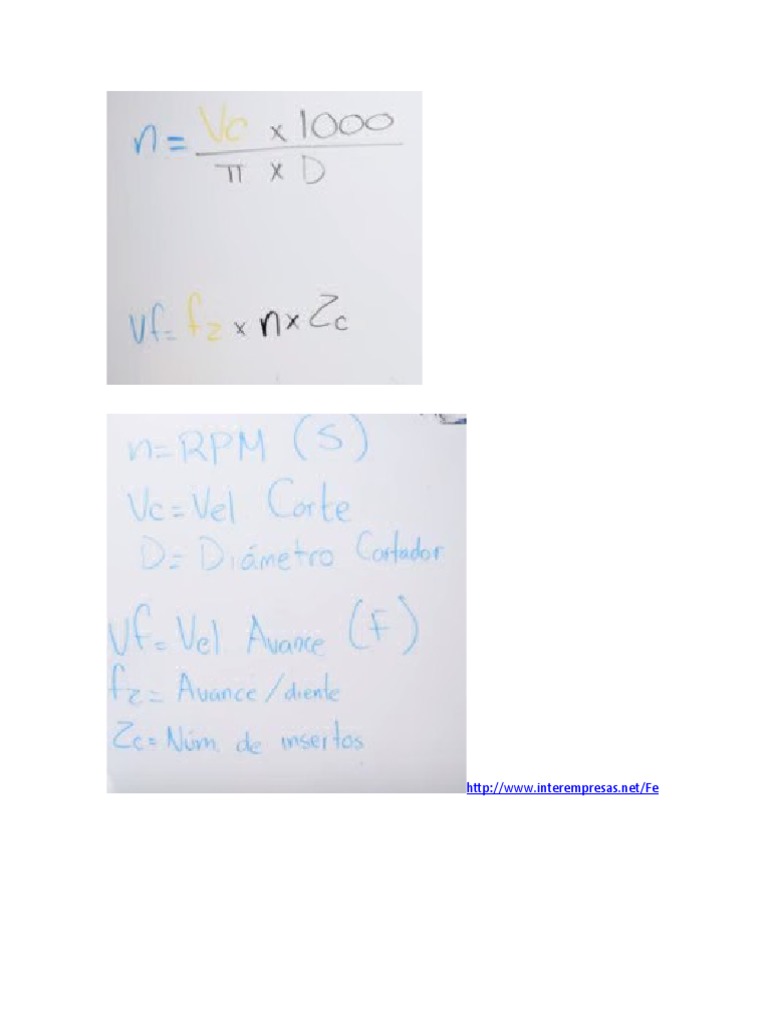 n = Vc x 1000
π x D
Vf = fz x n x Zc
n = RPM (S)
Vc = Vel Corte
D = Diámetro Cortador
Vf = Vel Avance (F)
fz = Avance/diente
Zc = Núm. de insertos
http://www.interempresas.net/Fe